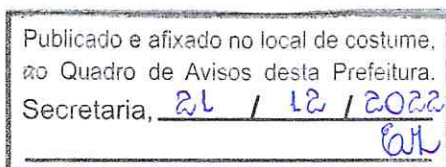 Publicado e afixado no local de costume,
ao Quadro de Avisos desta Prefeitura.
Secretaria, 21 / 12 / 2022